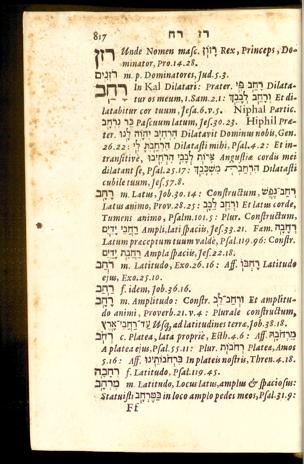 817 רז רח
רזן Unde Nomen masc. רוזן Rex, Princeps, Do-
minator, Pro.14.28.
רוזנים m. p. Dominatores, Jud.5.3.
רחב In Kal Dilatari: Præter. רחב פי Dilata-
tur os meum, 1.Sam.2.1: ורחב לבבך Et di-
latabitur cor tuum, Jesa.6.v.5. Niphal Partic.
כר נרחב Pascuum latum, Jesa.30.23. Hiphil Præ-
ter. הרחיב יהוה לנו Dilatavit Dominus nobis, Gen.
26.22: הרחבת לי Dilatasti mihi, Psal.4.2: Et in-
transitivè, צרות לבבי הרחיבו Angustiæ cordis mei
dilatant se, Psal.25.17: הרחבת משכבך Dilatasti
cubile tuum, Jes.57.8.
רחב m. Latus, Job.30.14: Constructum, רחב נפש
Latus animo, Prov.28.25: ורחב לבב Et latus corde,
Tumens animo, Psalm.101.5: Plur. Constructum,
רחבי ידים Ampli, lati spaciis, Jes.33.21. Fœm. רחבה
Latum præceptum tuum valdè, Psal.119.96: Constr.
רחבת ידים Ampla spaciis, Jes.22.18.
רחב m. Latitudo, Exo.26.16: Aff. רחבו Latitudo
ejus, Exo.25.10.
רחב f. idem, Job.36.16.
רחב m. Amplitudo: Constr. ורחב לב Et amplitu-
do animi, Proverb.21.v.4: Plurale constructum,
עד רחבי ארץ Usq; ad latitudines terræ, Job.38.18.
רחב c. Platea, lata propriè, Esth.4.6: Aff. מרחבה
A platea ejus, Psal.55.11: Plur. רחבות Platea, Amos
5.16: Aff. ברחבותינו In plateis nostris, Thren.4.18.
רחבה f. Latitudo, Psal.119.45.
מרחב m. Latitudo, Locus latus, amplus & spaciosus:
Statuisti במרחב in loco amplo pedes meos, Psal.31.9:
Ff